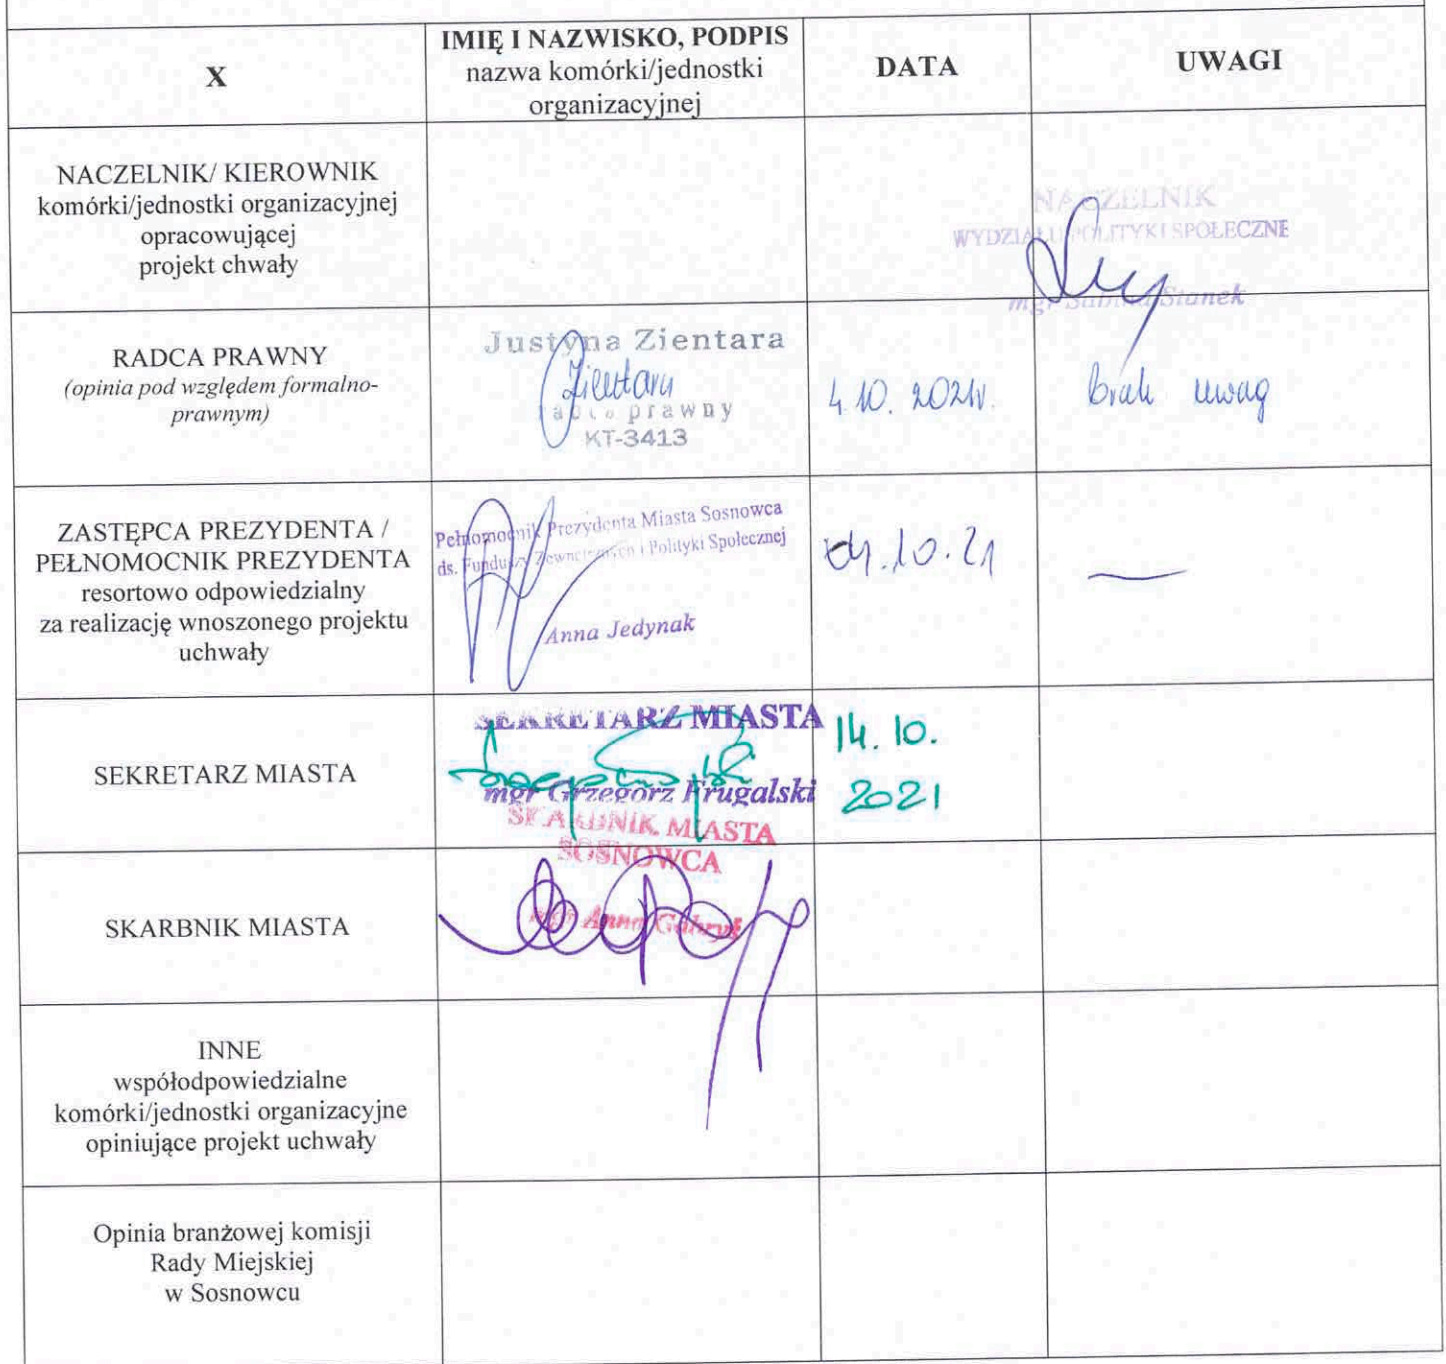 X
IMIĘ I NAZWISKO, PODPIS
nazwa komórki/jednostki
organizacyjnej
DATA
UWAGI
NACZELNIK/ KIEROWNIK
komórki/jednostki organizacyjnej
opracowującej
projekt chwały
NACZELNIK
WYDZIAŁU POLITYKI SPOŁECZNE
mgr Sabina Stanek
RADCA PRAWNY
(opinia pod względem formalno-
prawnym)
Justyna Zientara
Zientara
radca prawny
KT-3413
4.10. 2021r.
brak uwag
ZASTĘPCA PREZYDENTA /
PEŁNOMOCNIK PREZYDENTA
resortowo odpowiedzialny
za realizację wnoszonego projektu
uchwały
Pełnomocnik Prezydenta Miasta Sosnowca
ds. Funduszy Zewnętrznych i Polityki Społecznej
Anna Jedynak
04.10.21
—
SEKRETARZ MIASTA
SEKRETARZ MIASTA
mgr Grzegorz Frugalski
14. 10.
2021
SKARBNIK MIASTA
SKARBNIK MIASTA
SOSNOWCA
mgr Anna Gabryś
INNE
współodpowiedzialne
komórki/jednostki organizacyjne
opiniujące projekt uchwały
Opinia branżowej komisji
Rady Miejskiej
w Sosnowcu